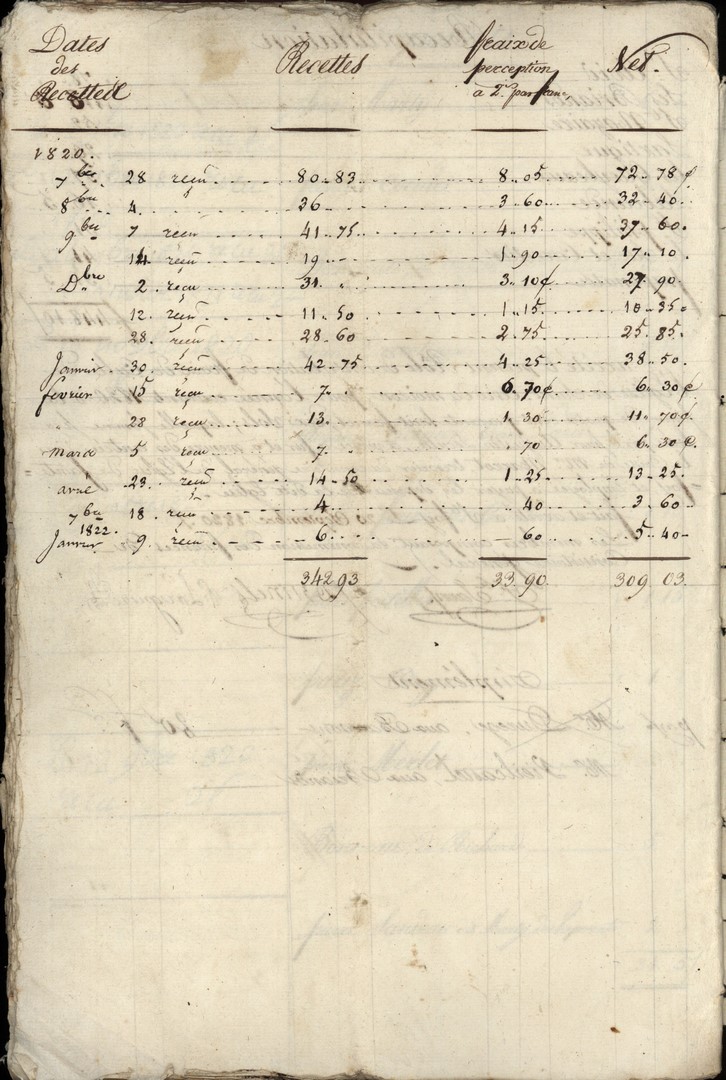 Dates Recettes fraix de Net.
des perception
Recettes a 2s. par franc
1820.
7bre 28 reçu 80..83 8..05 72..78 c
8bre 4 36 3..60 32..40
9bre 7 reçu 41..75 4..15 37..60
14 reçu 19 1..90 17..10
Dbre 2 reçu 31 3..10 c 27..90
12 reçu 11..50 1..15 10..35
28 reçu 28..60 2..75 25..85
Janvier 30 reçu 42..75 4..25 38..50
fevrier 15 reçu 7 70 c 6..30 c
28 reçu 13 1..30 11..70 c
mars 5 reçu 7 70 6..30 c
avril 23 reçu 14..50 1..25 13..25
7bre 18 reçu 4 40 3..60
1822.
Janvier 9 reçu 6 60 5..40
342 93 33 90 309 03